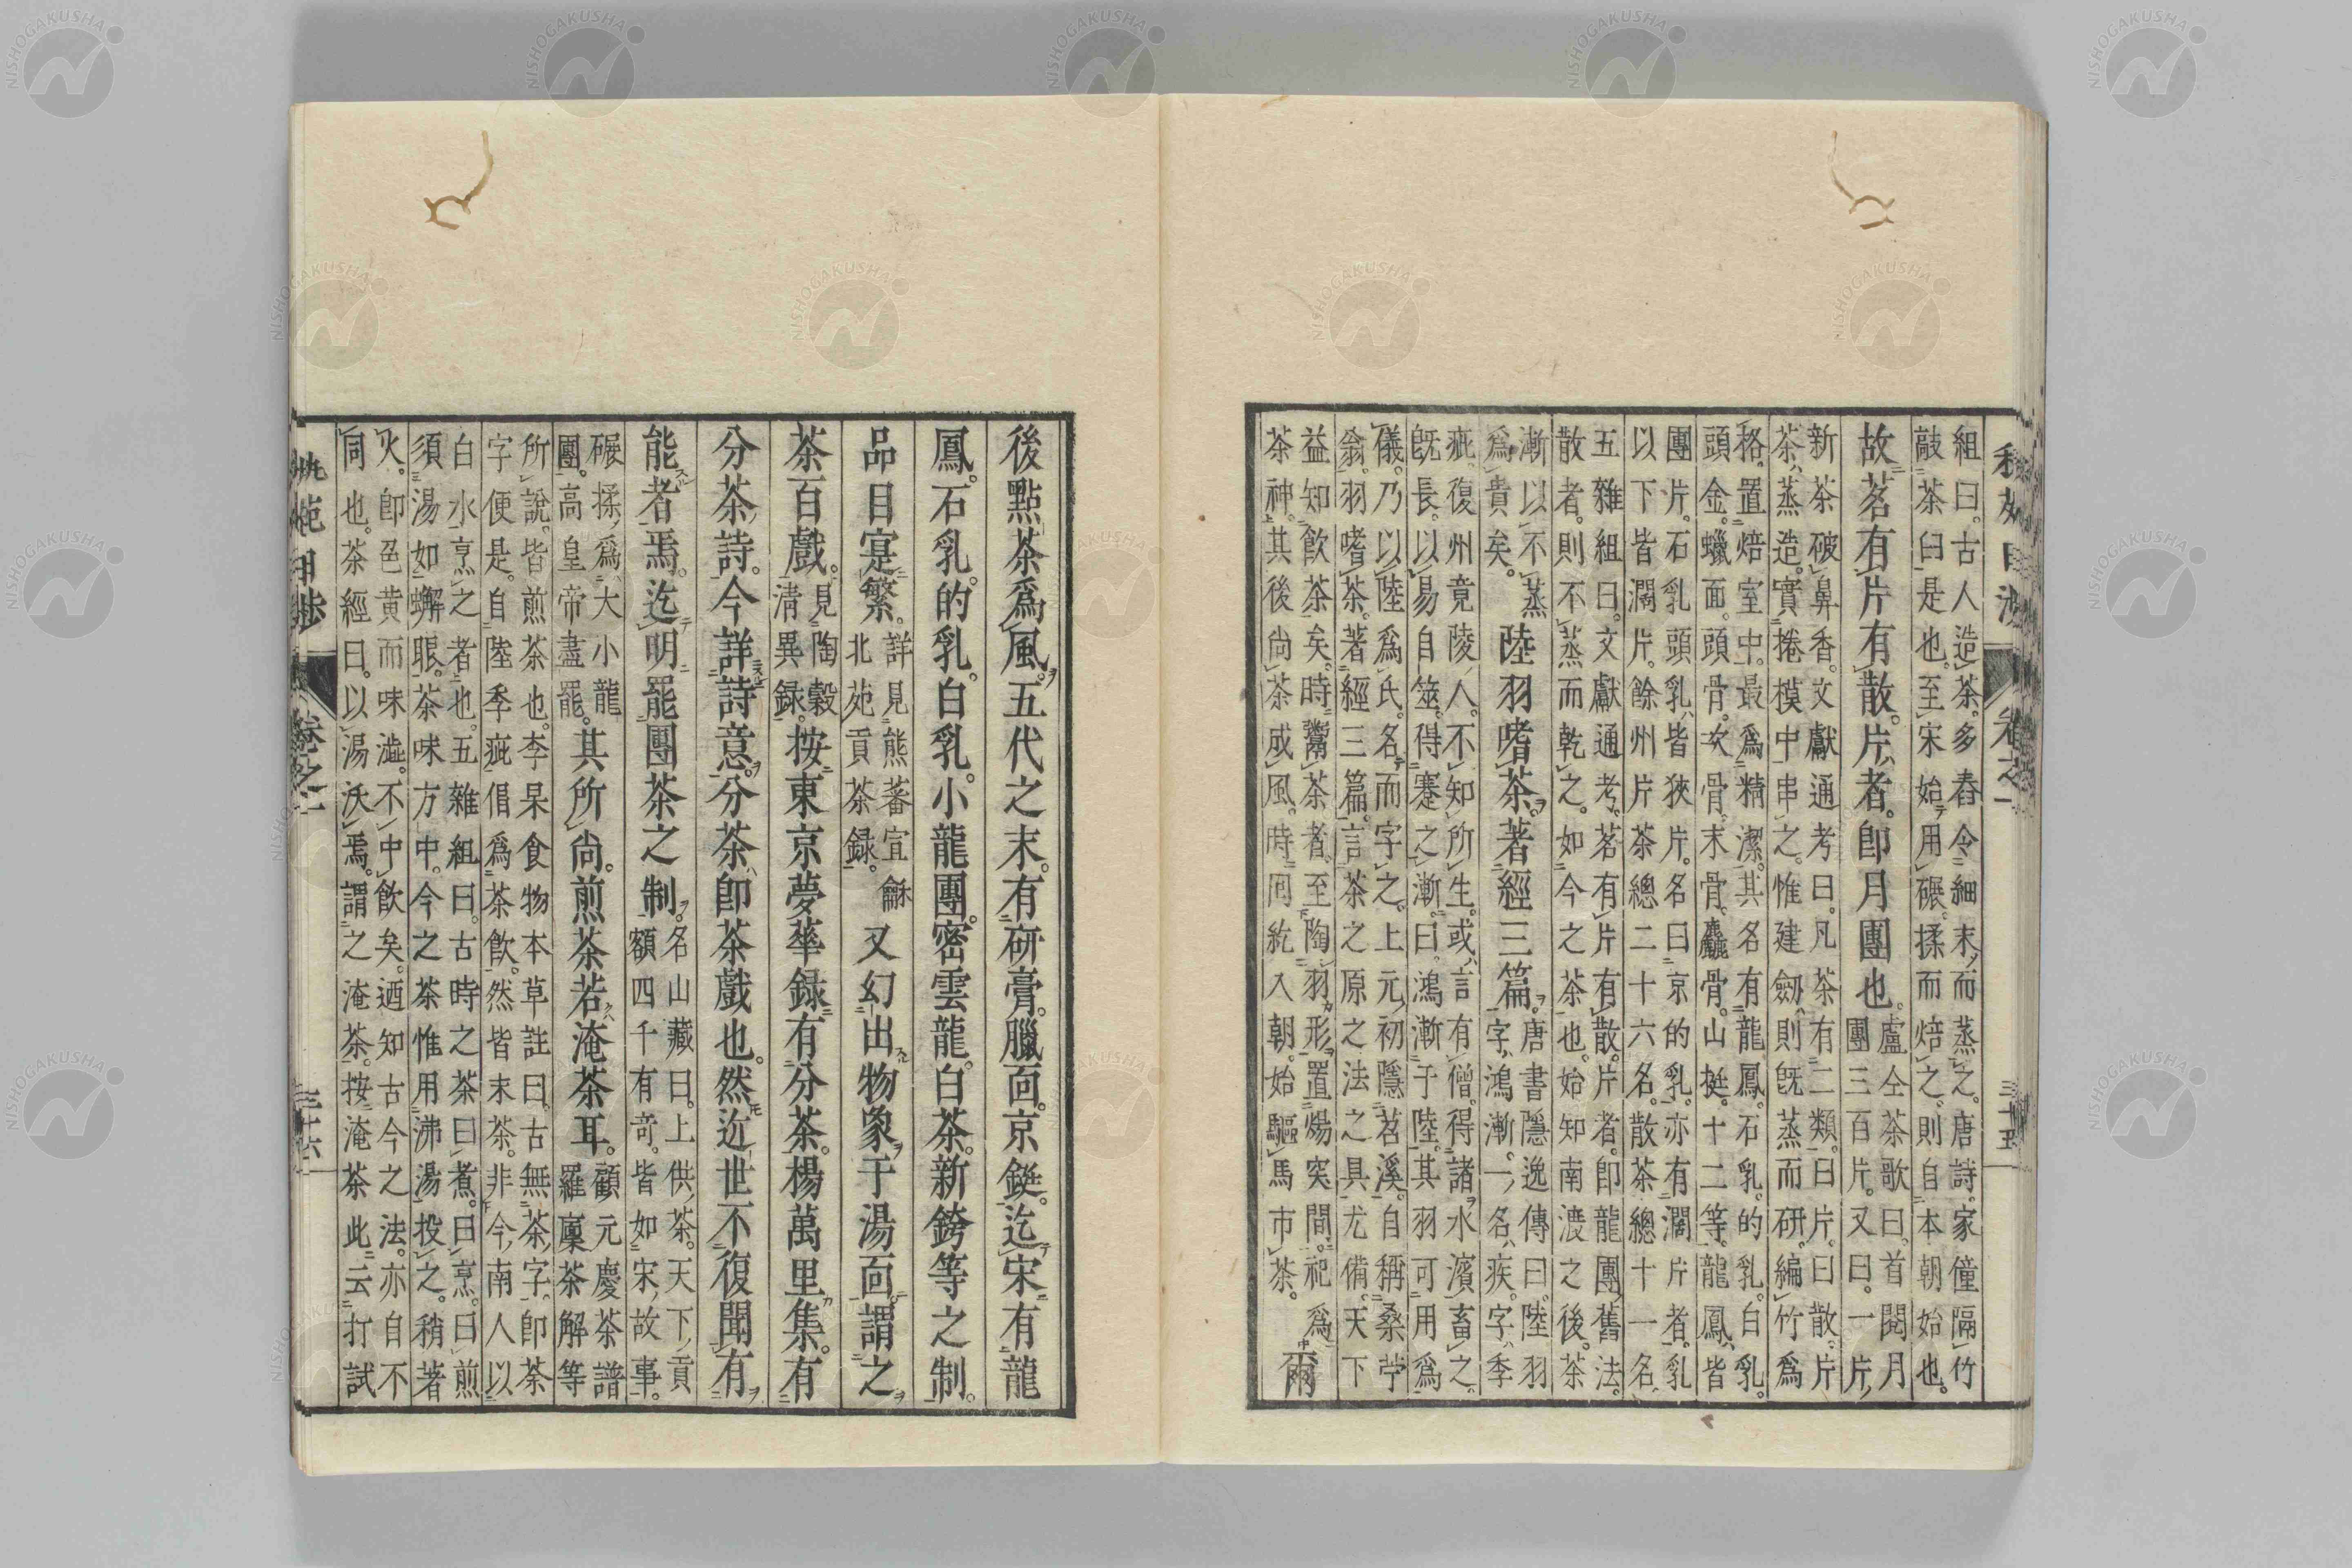 組曰。古人造茶。多舂令細末而蒸之。唐詩。家僮隔竹
敲茶臼是也。至宋始用碾。揉而焙之。則自本朝始也。
故茗有片有散。片者。卽月團也。盧仝茶歌曰。首閲月
團三百片。又曰。一片
新茶破鼻香。文獻通考曰。凡茶有二類。曰片。曰散。片
茶蒸造。實捲模中串之。惟建劒則旣蒸而研。編竹爲
格。置焙室中。最爲精潔。其名有龍鳳。石乳。的乳。白乳。
頭金。蠟面。頭骨。次骨。末骨。麤骨。山挺。十二等。龍鳳皆
團片。石乳頭乳皆狹片。名曰京的乳。亦有濶片者。乳
以下皆濶片。餘州片茶總二十六名。散茶總十一名。
五雜組曰。文獻通考。茗有片有散。片者。卽龍團舊法。
散者。則不蒸而乾之。如今之茶也。始知南渡之後。茶
漸以不蒸
爲貴矣。
陸羽嗜茶。著經三篇。唐書隱逸傳曰。陸羽
字鴻漸。一名疾。字季
疵。復州竟陵人。不知所生。或言有僧得諸水濱畜之。
旣長。以易自筮。得蹇之漸。曰鴻漸于陸。其羽可用爲
儀。乃以陸爲氏。名而字之。上元初隱苕溪。自稱桑苧
翁。羽嗜茶。著經三篇。言茶之原之法之具尤備。天下
益知飮茶矣。時鬻茶者。至陶羽形置煬突間。祀爲
茶神。其後尙茶成風。時囘紇入朝。始驅馬市茶。
爾
卷之一
三十五
後點茶爲風。五代之末。有研膏。臘面。京鋌。迄宋有龍
鳳。石乳。的乳。白乳。小龍團。密雲龍。白茶。新銙等之制。
品目寔繁。詳見熊蕃宣龢
北苑貢茶録。
又幻出物象于湯面。謂之
茶百戲。見陶穀
淸異録。
按東京夢華録有分茶。楊萬里集。有
分茶詩。今詳詩意。分茶卽茶戲也。然近世不復聞有
能者焉。迄明罷團茶之制。名山藏曰。上供茶。天下貢
額四千有奇。皆如宋故事。
碾揉爲大小龍
團。高皇帝盡罷。
其所尙。煎茶若淹茶耳。顧元慶茶譜
羅廩茶解等
所說。皆煎茶也。李杲食物本草註曰。古無茶字。卽荼
字便是。自陸季疵倡爲茶飮。然皆末茶。非今南人以
白水烹之者也。五雜組曰。古時之茶。曰煮。曰烹。曰煎
須湯如蠏眼。茶味方中。今之茶惟用沸湯投之。稍著
火。卽色黃而味澁。不中飮矣。迺知古今之法。亦自不
同也。茶經曰。以湯沃焉。謂之淹茶。按淹茶此云打試
秇苑日渉
卷之一
三十六